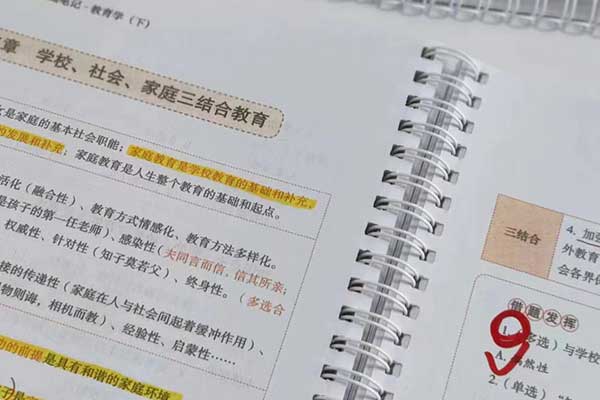 笔记·教育学（下）
章 学校、社会、家庭三结合教育
是家庭的基本社会职能；家庭教育是学校教育的基础和补充，
的发展和补充；家庭教育是人生整个教育的基础和起点。
活化（融合性）、教育方式情感化、教育方法多样化。
是孩子的第一任老师）、感染性（夫同言而信，信其所亲；
权威性、针对性（知子莫若父）、终身性。（多选合
接的传递性（家庭在人与社会间起着缓冲作用）、
物则诲，相机而教）、经验性、启蒙性……
的前提是具有和谐的家庭环境
三结合
4. 加强
外教育
会各界
借题发挥
多选）与学校
A. 然性
2.（单选）
9